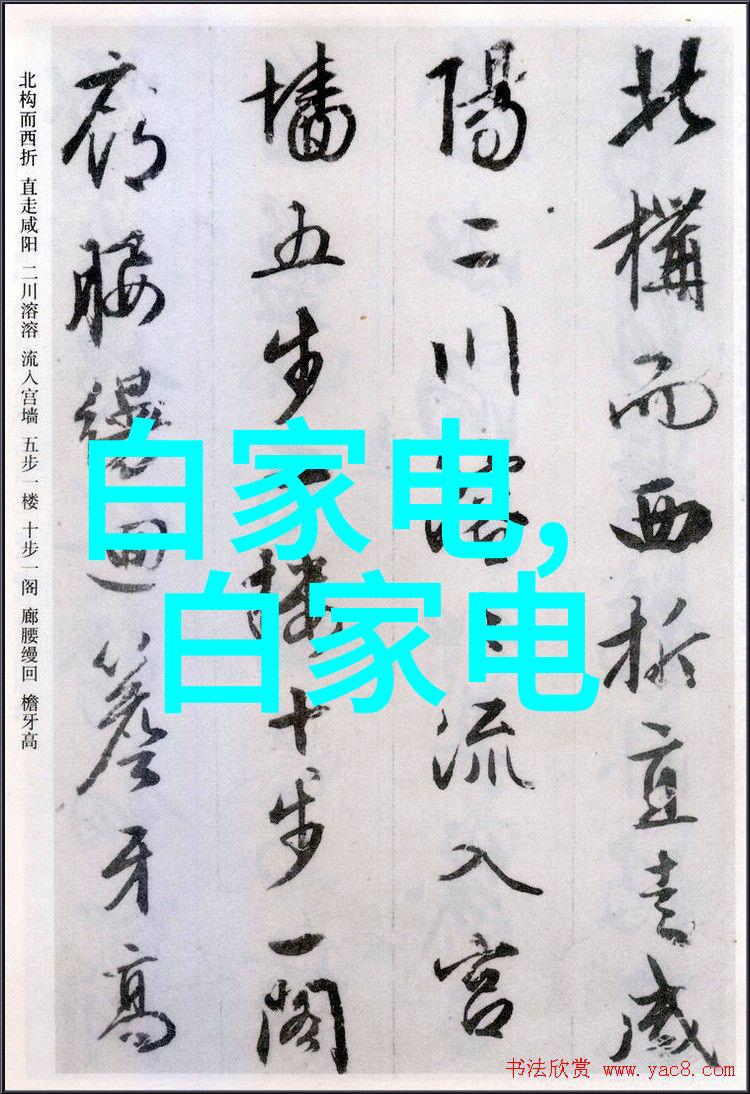 北構而西折直走咸
陽二川溶〻流入宮
墻五步一樓十步一閣
廊腰縵迴簷牙高
北构而西折 直走咸阳 二川溶溶 流入宫墙 五步一楼 十步一阁 廊腰缦回 檐牙高
白家电,
白家电
书法欣赏 www.yac8.com